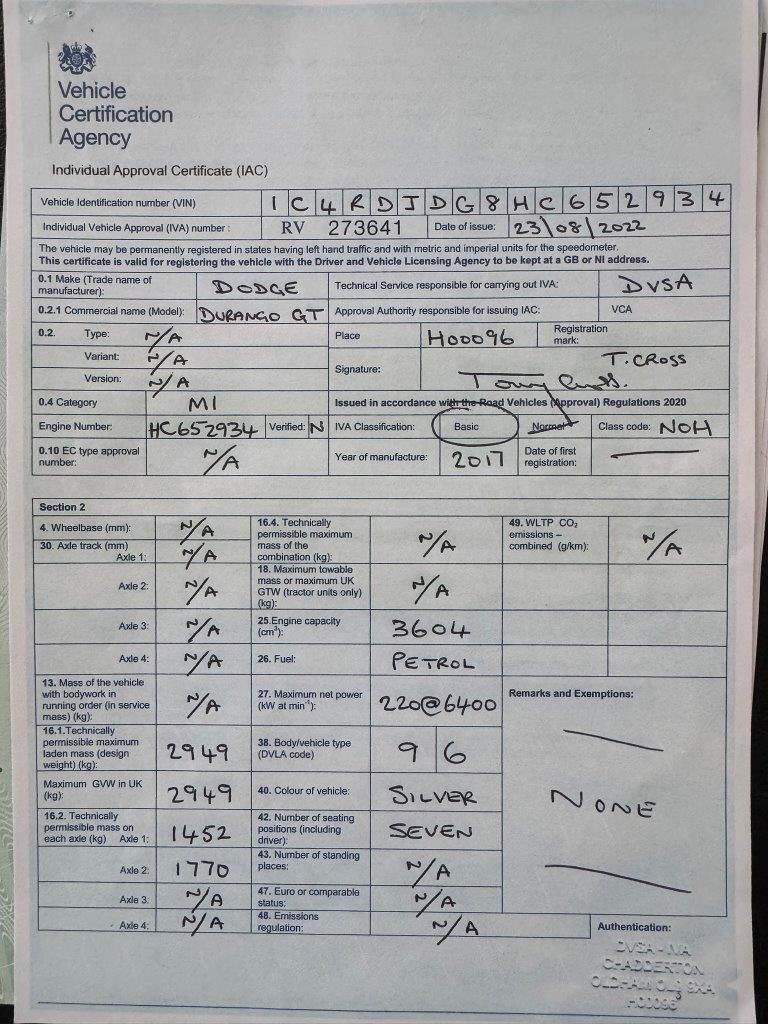 Vehicle
Certification
Agency
Individual Approval Certificate (IAC)
Vehicle Identification number (VIN) 1C4RDJDG8HC652934
Individual Vehicle Approval (IVA) number : RV 273641 Date of issue: 23/08/2022
The vehicle may be permanently registered in states having left hand traffic and with metric and imperial units for the speedometer.
This certificate is valid for registering the vehicle with the Driver and Vehicle Licensing Agency to be kept at a GB or NI address.
0.1 Make (Trade name of manufacturer): DODGE Technical Service responsible for carrying out IVA: DVSA
0.2.1 Commercial name (Model): DURANGO GT Approval Authority responsible for issuing IAC: VCA
0.2. Type: N/A Place H00096 Registration mark:
Variant: N/A Signature: Tony Cross. T. CROSS
Version: N/A
0.4 Category M1 Issued in accordance with the Road Vehicles (Approval) Regulations 2020
Engine Number: HC652934 Verified: N IVA Classification: Basic Normal Class code: NOH
0.10 EC type approval number: N/A Year of manufacture: 2017 Date of first registration:
Section 2
4. Wheelbase (mm): N/A 16.4. Technically permissible maximum mass of the combination (kg): N/A 49. WLTP CO₂ emissions – combined (g/km): N/A
30. Axle track (mm) Axle 1: N/A
Axle 2: N/A 18. Maximum towable mass or maximum UK GTW (tractor units only) (kg): N/A
Axle 3: N/A 25.Engine capacity (cm³): 3604
Axle 4: N/A 26. Fuel: PETROL
13. Mass of the vehicle with bodywork in running order (in service mass) (kg): N/A 27. Maximum net power (kW at min⁻¹): 220@6400 Remarks and Exemptions:
16.1.Technically permissible maximum laden mass (design weight) (kg): 2949 38. Body/vehicle type (DVLA code) 9 6
Maximum GVW in UK (kg): 2949 40. Colour of vehicle: SILVER NONE
16.2. Technically permissible mass on each axle (kg) Axle 1: 1452 42. Number of seating positions (including driver): SEVEN
Axle 2: 1770 43. Number of standing places: N/A
Axle 3: N/A 47. Euro or comparable status: N/A
Axle 4: N/A 48. Emissions regulation: N/A Authentication:
DVSA - IVA
CHADDERTON
OLDHAM OL9 9XA
H00096